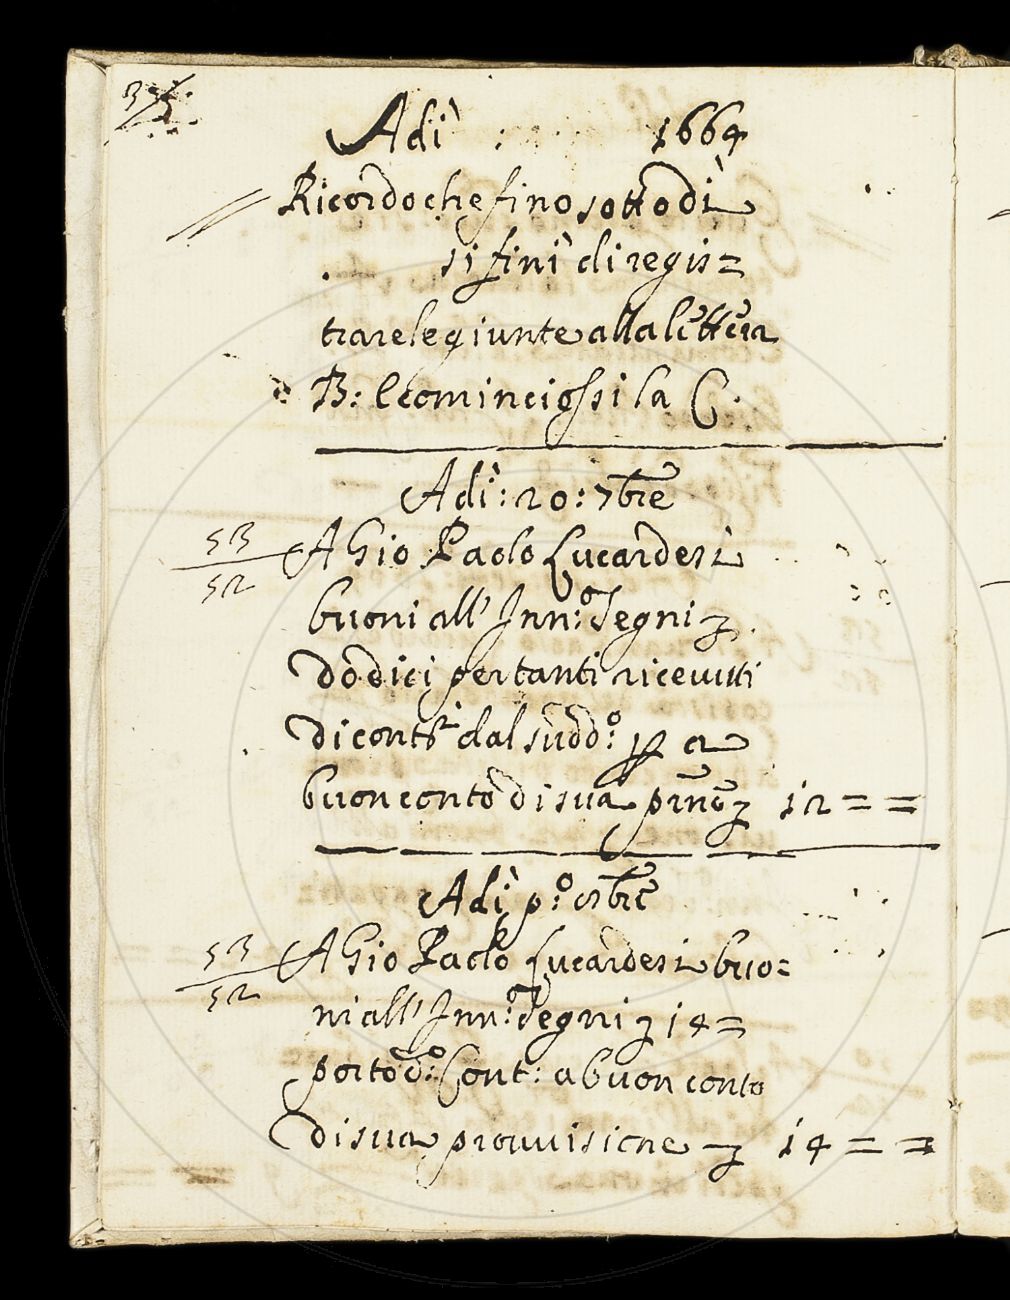 Adì : 1664
Ricordo che fino sotto dì
si finì di regis=
trare le giunte alla lettera
B: e cominciossi la C.
Adì: 20: 7bre
53
52
A Gio Paolo Lucardesi
buoni all' Inn:o Segni
dodici per tanti ricevuti
di conti dal sudd:o p a
buon conto di sua prne 12 = =
Adì p:o 8bre
53
52
A Gio Paolo Lucardesi buo=
ni all' Inn:o Segni 14 =
portò d:o Cont: a buon conto
di sua provvisione 14 = =